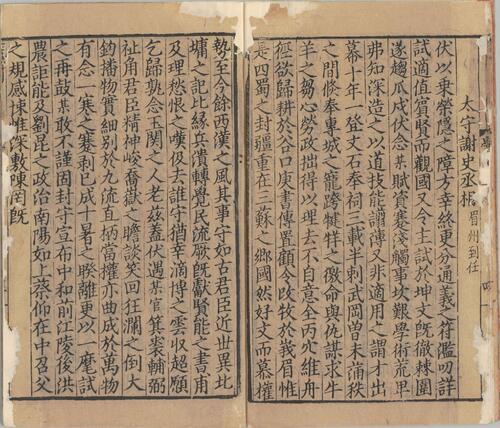 太守謝史丞相 眉州到任
伏以乗榮隠之障方幸終更分通義之符濫叨詳
試適值賓賢而觀國又令主試於坤文旣徹棘圍
遂趨瓜戍伏念某賦資蹇淺觸事坎艱學術荒畢
弗知深造之以道技能謭薄又非適用之謂才出
幕十年一登文石奉祠三載半刺武岡曽未蒲秩
之間倏奉專城之寵跨犍牂之徼命與仇謀求牛
羊之芻心勞政拙得以理去不自意全丙穴維舟
徑欲歸耕於谷口庚書傳置顧令把牧於峩眉惟
是四蜀之封疆重在三蘇之鄉國然好文而慕權
勢至今餘西漢之風其事守如古君臣近世異北
墉之記比縁兵潰轉覺民流厥旣獻賢能之書甫
及理愁恨之嘆伋去誰守猶幸滴博之雲収超願
乞歸孰念玉関之人老兹蓋伏遇某官箕裘輔弼
祉角君臣精神峻喬嶽之瞻談笑回狂瀾之倒大
鈞播物實細别於九流直柄當權亦曲成於萬物
有念一寒之蹇剥已成十暑之暌離更以一麾試
之再鼓某敢不謹固封守宣布中和前江陵後洪
農詎能及劉昆之政治南陽如上蔡仰在中召父
之規感悚惟深敷陳罔旣